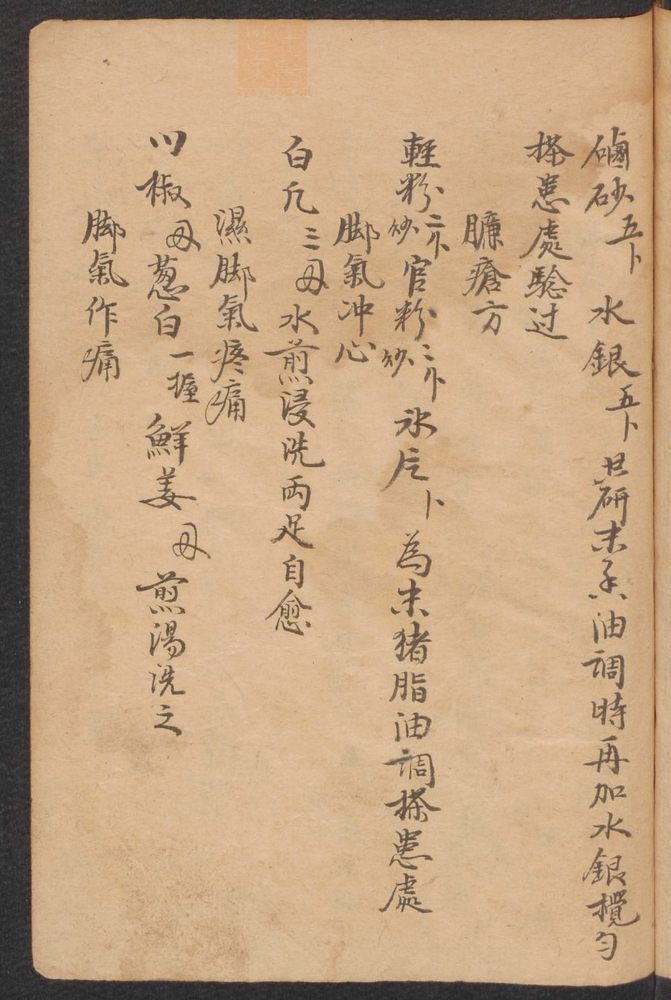 硇砂五卜 水銀五卜 共研末香油調時再加水銀攪勻
搽患處驗过
臁瘡方
輕粉二卜炒官粉二卜炒氷片卜為末猪脂油調搽患處
脚氣冲心
白凢三㕛水煎浸洗两足自愈
濕脚氣疼痛
川椒㕛葱白一握鮮姜㕛煎湯洗之
脚氣作痛